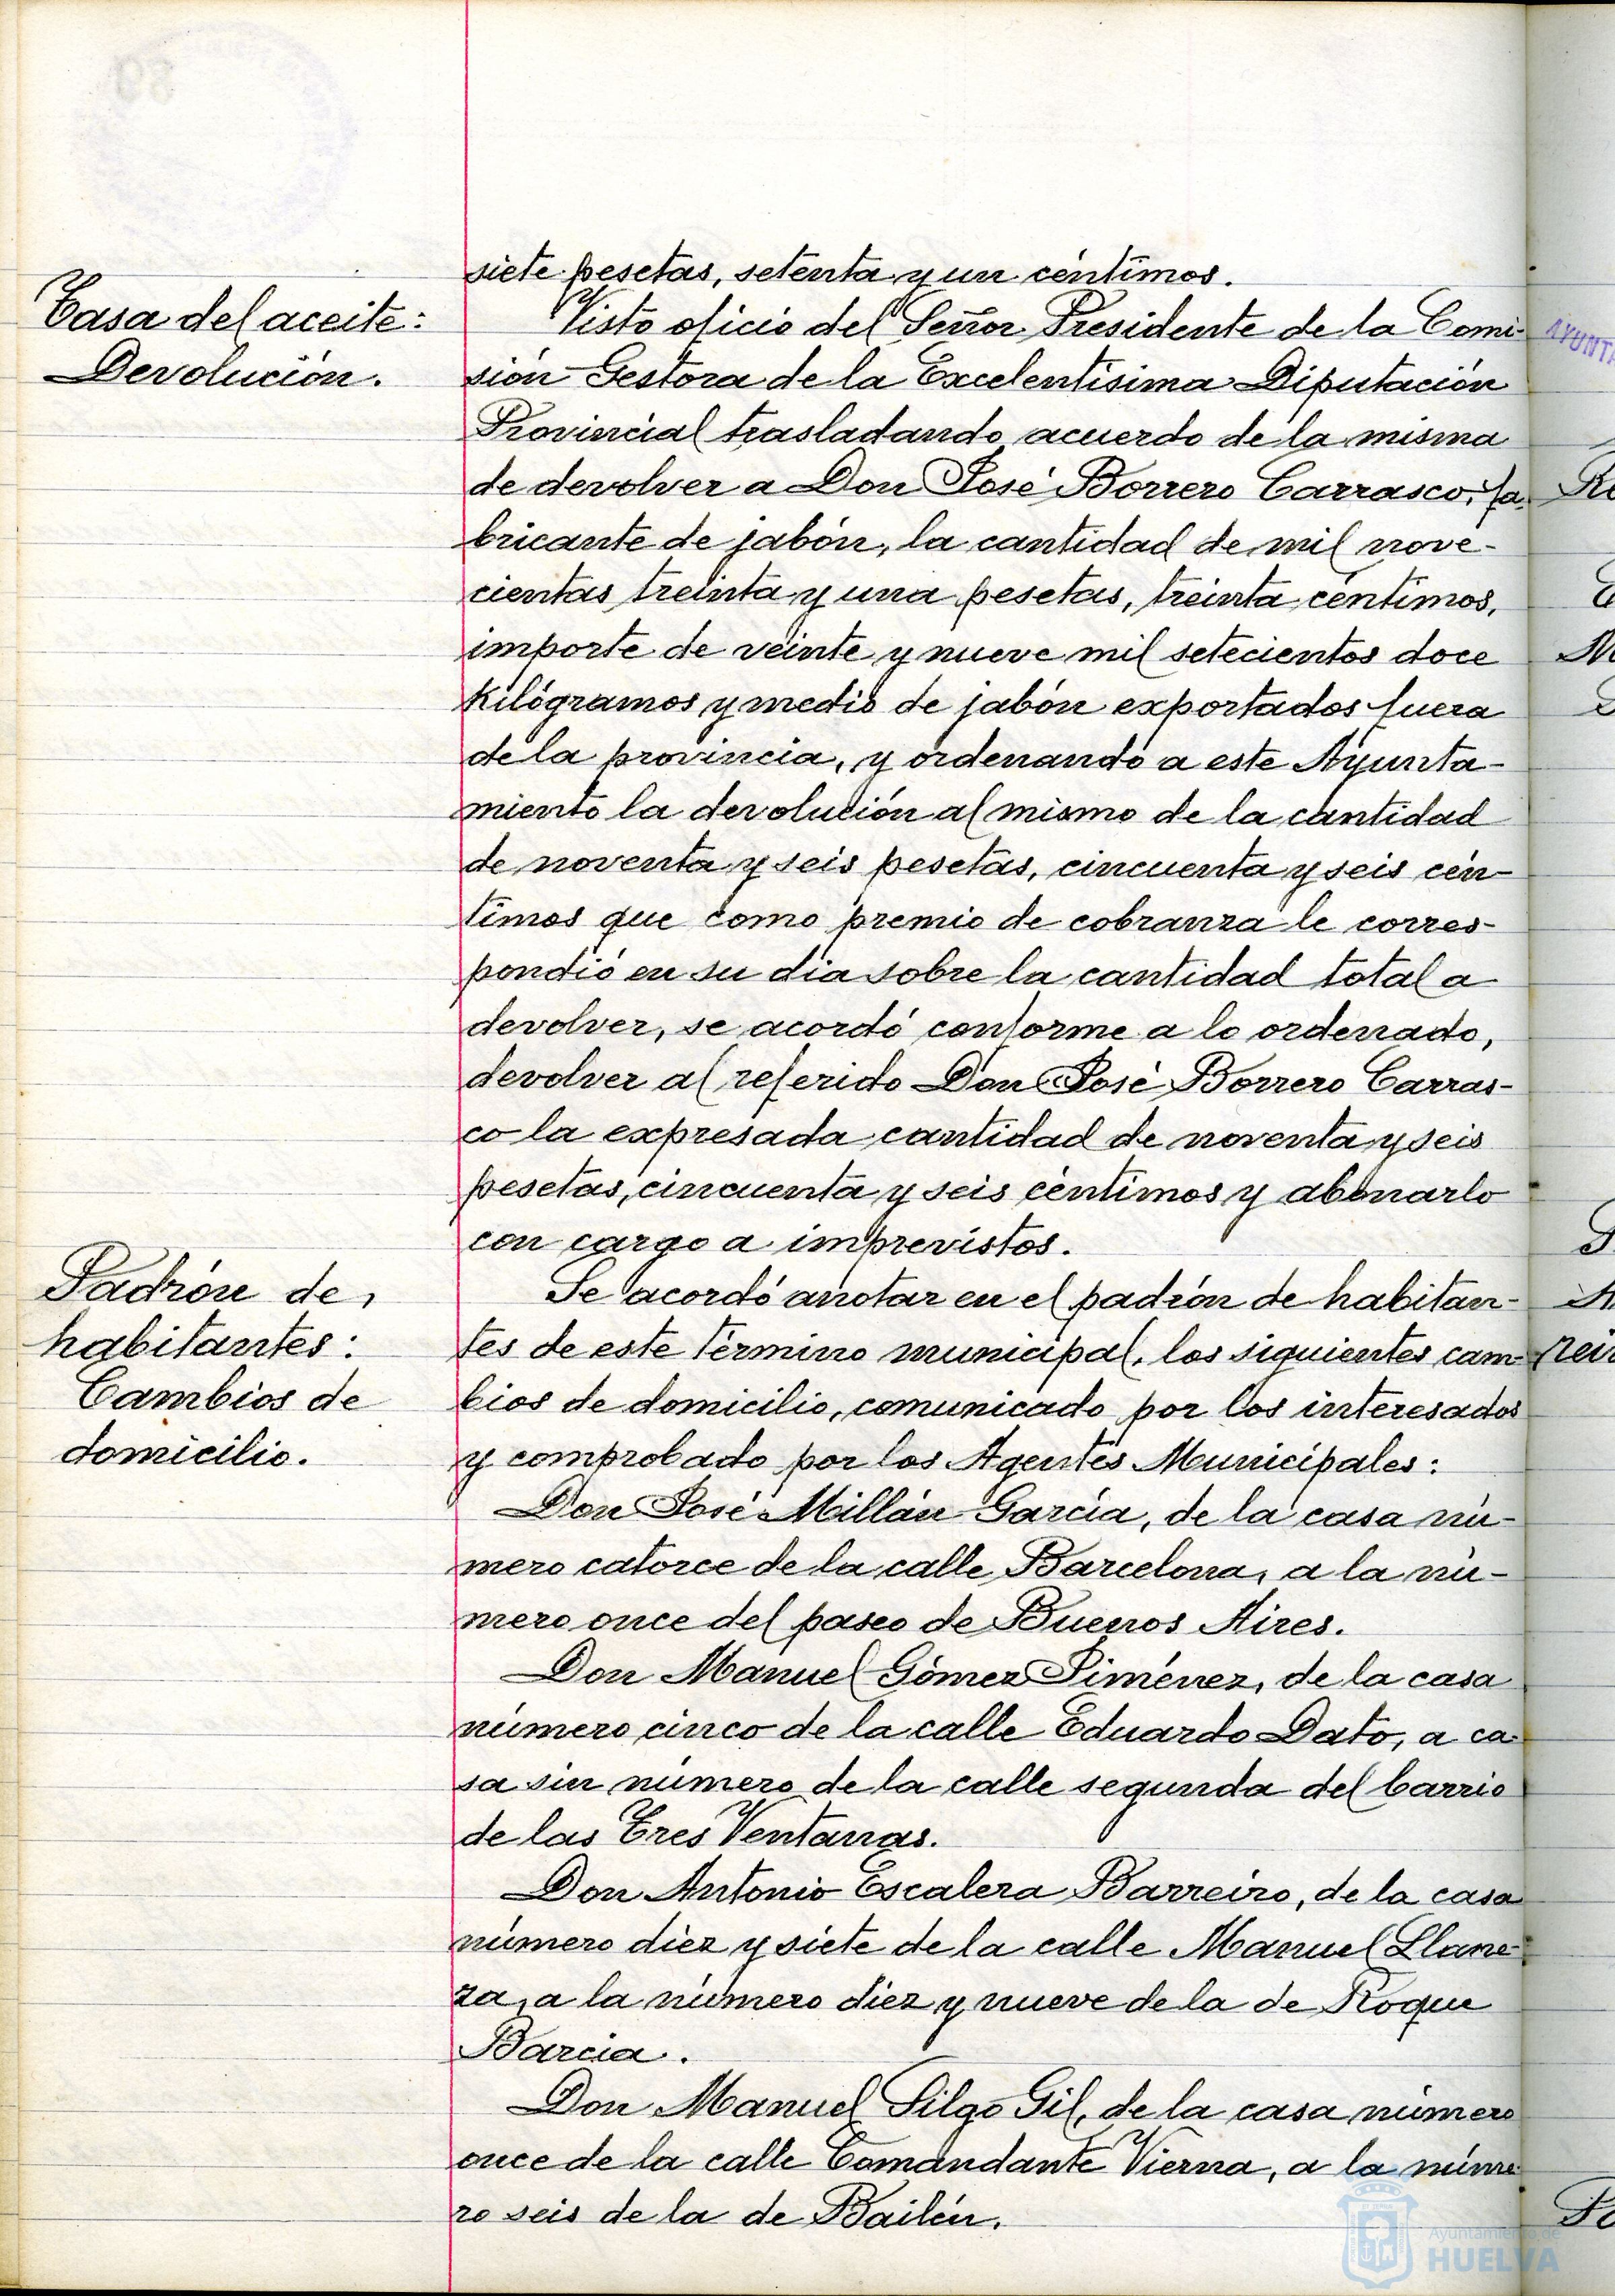 siete pesetas, setenta y un céntimos.
Casa del aceite:
Devolución.
Visto oficio del Señor Presidente de la Comi-
sión Gestora de la Excelentísima Diputación
Provincial trasladando acuerdo de la misma
de devolver a Don José Borrero Carrasco, fa-
bricante de jabón, la cantidad de mil nove-
cientas treinta y una pesetas, treinta céntimos,
importe de veinte y nueve mil setecientos doce
kilógramos y medio de jabón exportados fuera
de la provincia, y ordenando a este Ayunta-
miento la devolución al mismo de la cantidad
de noventa y seis pesetas, cincuenta y seis cén-
timos que como premio de cobranza le corres-
pondió en su día sobre la cantidad total a
devolver, se acordó conforme a lo ordenado,
devolver al referido Don José Borrero Carras-
co la expresada cantidad de noventa y seis
pesetas, cincuenta y seis céntimos y abonarlo
con cargo a imprevistos.
Padrón de
habitantes:
Cambios de
domicilio.
Se acordó anotar en el padrón de habitan-
tes de este término municipal, los siguientes cam-
bios de domicilio, comunicado por los interesados
y comprobado por los Agentes Municipales:
Don José Millán García, de la casa nú-
mero catorce de la calle Barcelona, a la nú-
mero once del paseo de Buenos Aires.
Don Manuel Gómez Jiménez, de la casa
número cinco de la calle Eduardo Dato, a ca-
sa sin número de la calle segunda del barrio
de las Tres Ventanas.
Don Antonio Escalera Barreiro, de la casa
número diez y siete de la calle Manuel Llane-
za, a la número diez y nueve de la de Roque
Barcia.
Don Manuel Silgo Gil, de la casa número
once de la calle Comandante Vierna, a la núme-
ro seis de la de Bailén.
AYUNT
Ayuntamiento de
HUELVA